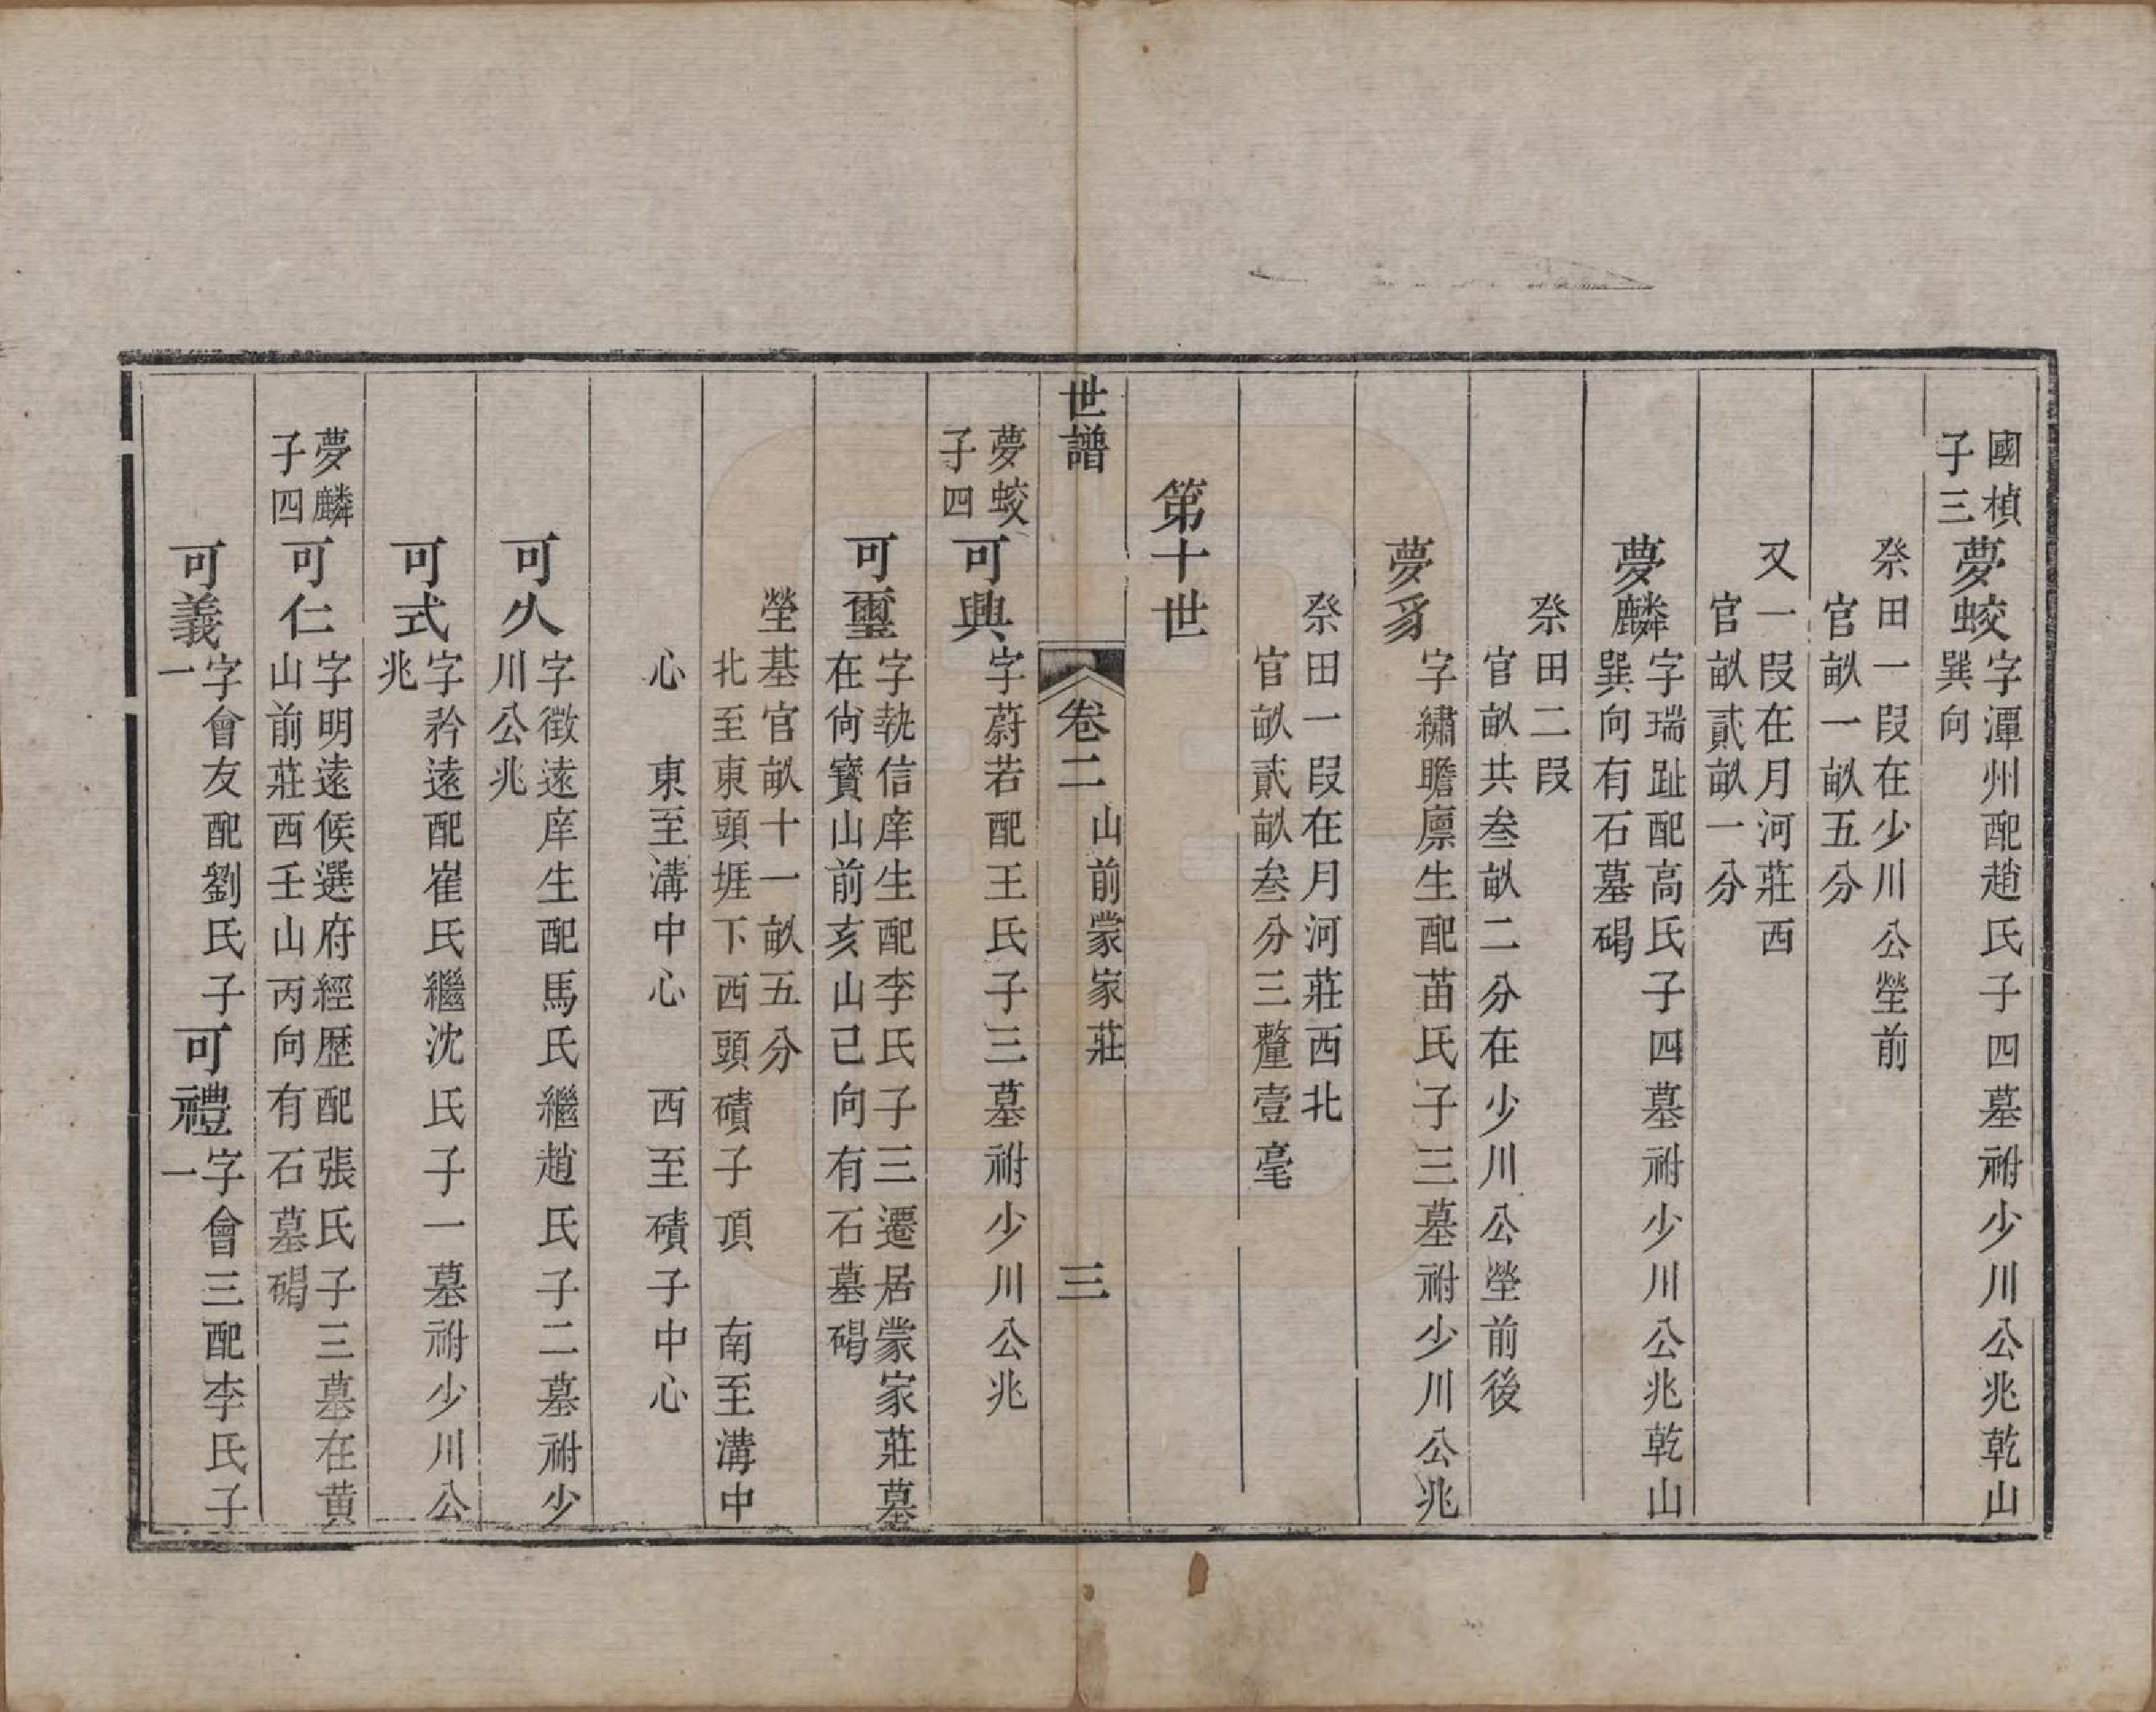 國楨
子三
夢蛟
字潭州配趙氏子四墓祔少川公兆乾山
巽向
祭田一段在少川公塋前
官畝一畝五分
又一段在月河莊西
官畝貳畝一分
夢麟
字瑞趾配高氏子四墓祔少川公兆乾山
巽向有石墓碣
祭田二段
官畝共叁畝二分在少川公塋前後
夢豸
字繡瞻廪生配苗氏子三墓祔少川公兆
祭田一段在月河莊西北
官畝貳畝叁分三釐壹毫
第十世
世譜
卷二
山前蒙家莊
三
夢蛟
子四
可興
字蔚若配王氏子三墓祔少川公兆
可璽
字執信庠生配李氏子三遷居蒙家莊墓
在尙寶山前亥山己向有石墓碣
塋基官畝十一畝五分
北至東頭堐下西頭磧子頂　南至溝中
心　東至溝中心　西至磧子中心
可久
字徵遠庠生配馬氏繼趙氏子二墓祔少
川公兆
可式
字矜遠配崔氏繼沈氏子一墓祔少川公
兆
夢麟
子四
可仁
字明遠候選府經歷配張氏子三墓在黄
山前莊西壬山丙向有石墓碣
可義
字會友配劉氏子
一
可禮
字會三配李氏子
一